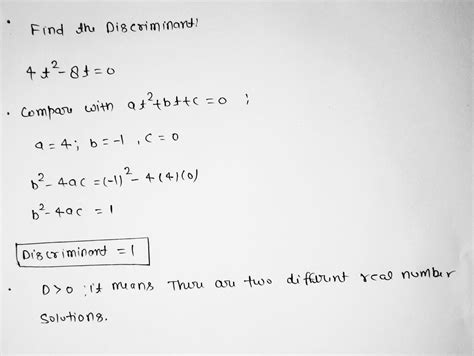 Find the Discriminant!
4t²-8t=0
• Compare with at²+bt+c=0 ;
a=4; b=-1, c=0
b²-4ac =(-1)²-4(4)(0)
b²-4ac = 1
Discriminant = 1
• D>0 ; it means There are two different real number
Solutions.